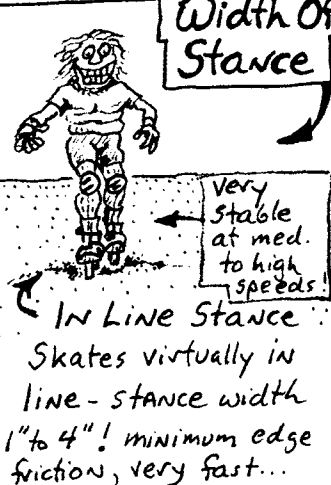 Width Of
Stance
very
stable
at med.
to high
speeds!
IN LINE STANCE
Skates virtually in
line - stance width
1" to 4"! minimum edge
friction, very fast...